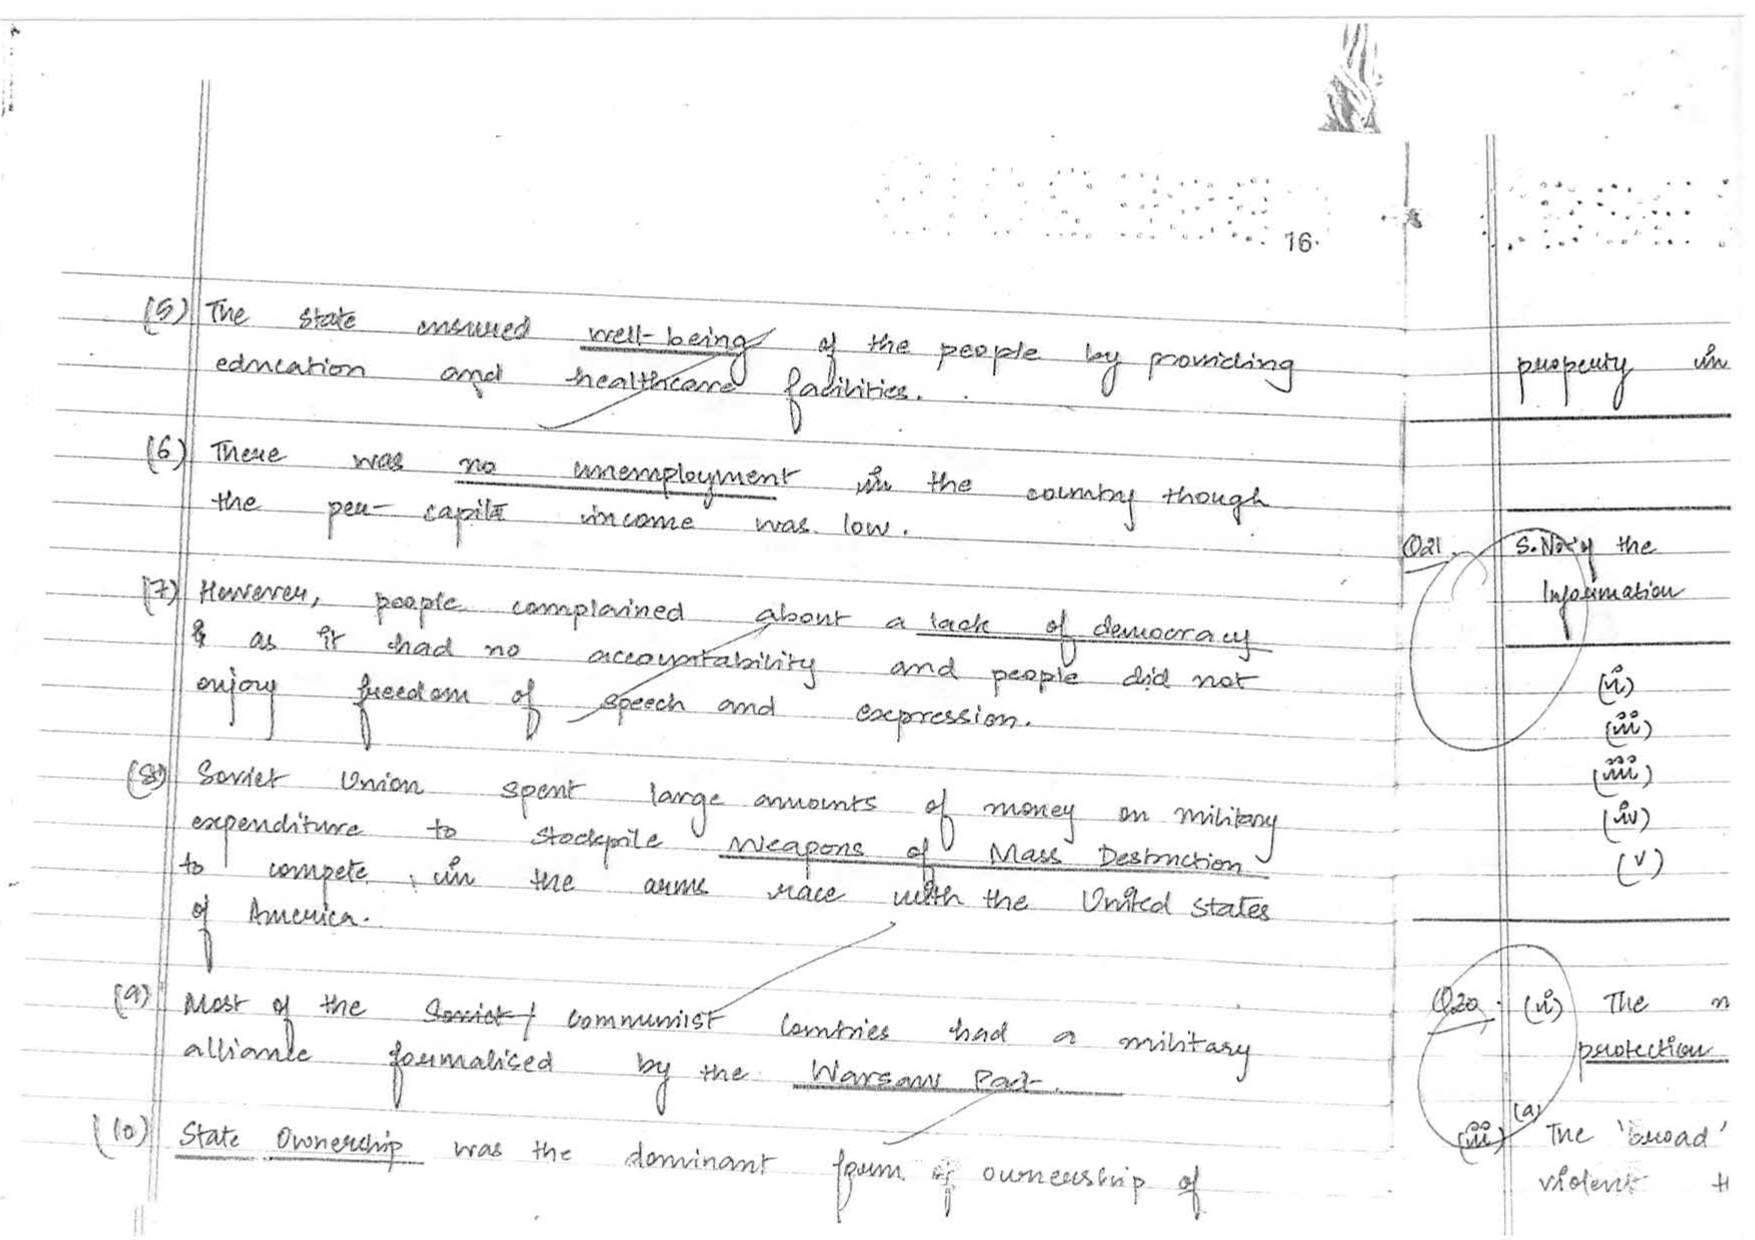 16.
(5) The state ensured well-being of the people by providing
education and healthcare facilities.
(6) There was no unemployment in the country though
the per-capita income was low.
(7) However, people complained about a lack of democracy
as it had no accountability and people did not
enjoy freedom of speech and expression.
(8) Soviet Union spent large amounts of money on military
expenditure to stockpile Weapons of Mass Destruction
to compete in the arms race with the United States
of America.
(9) Most of the Soviet / Communist Countries had a military
alliance formalised by the Warsaw Pact.
(10) State Ownership was the dominant form of ownership of
property in
Q21. S.No of the
Information
(i)
(ii)
(iii)
(iv)
(v)
Q20. (i) The
protection
(ii) (a) The 'broad'
violent